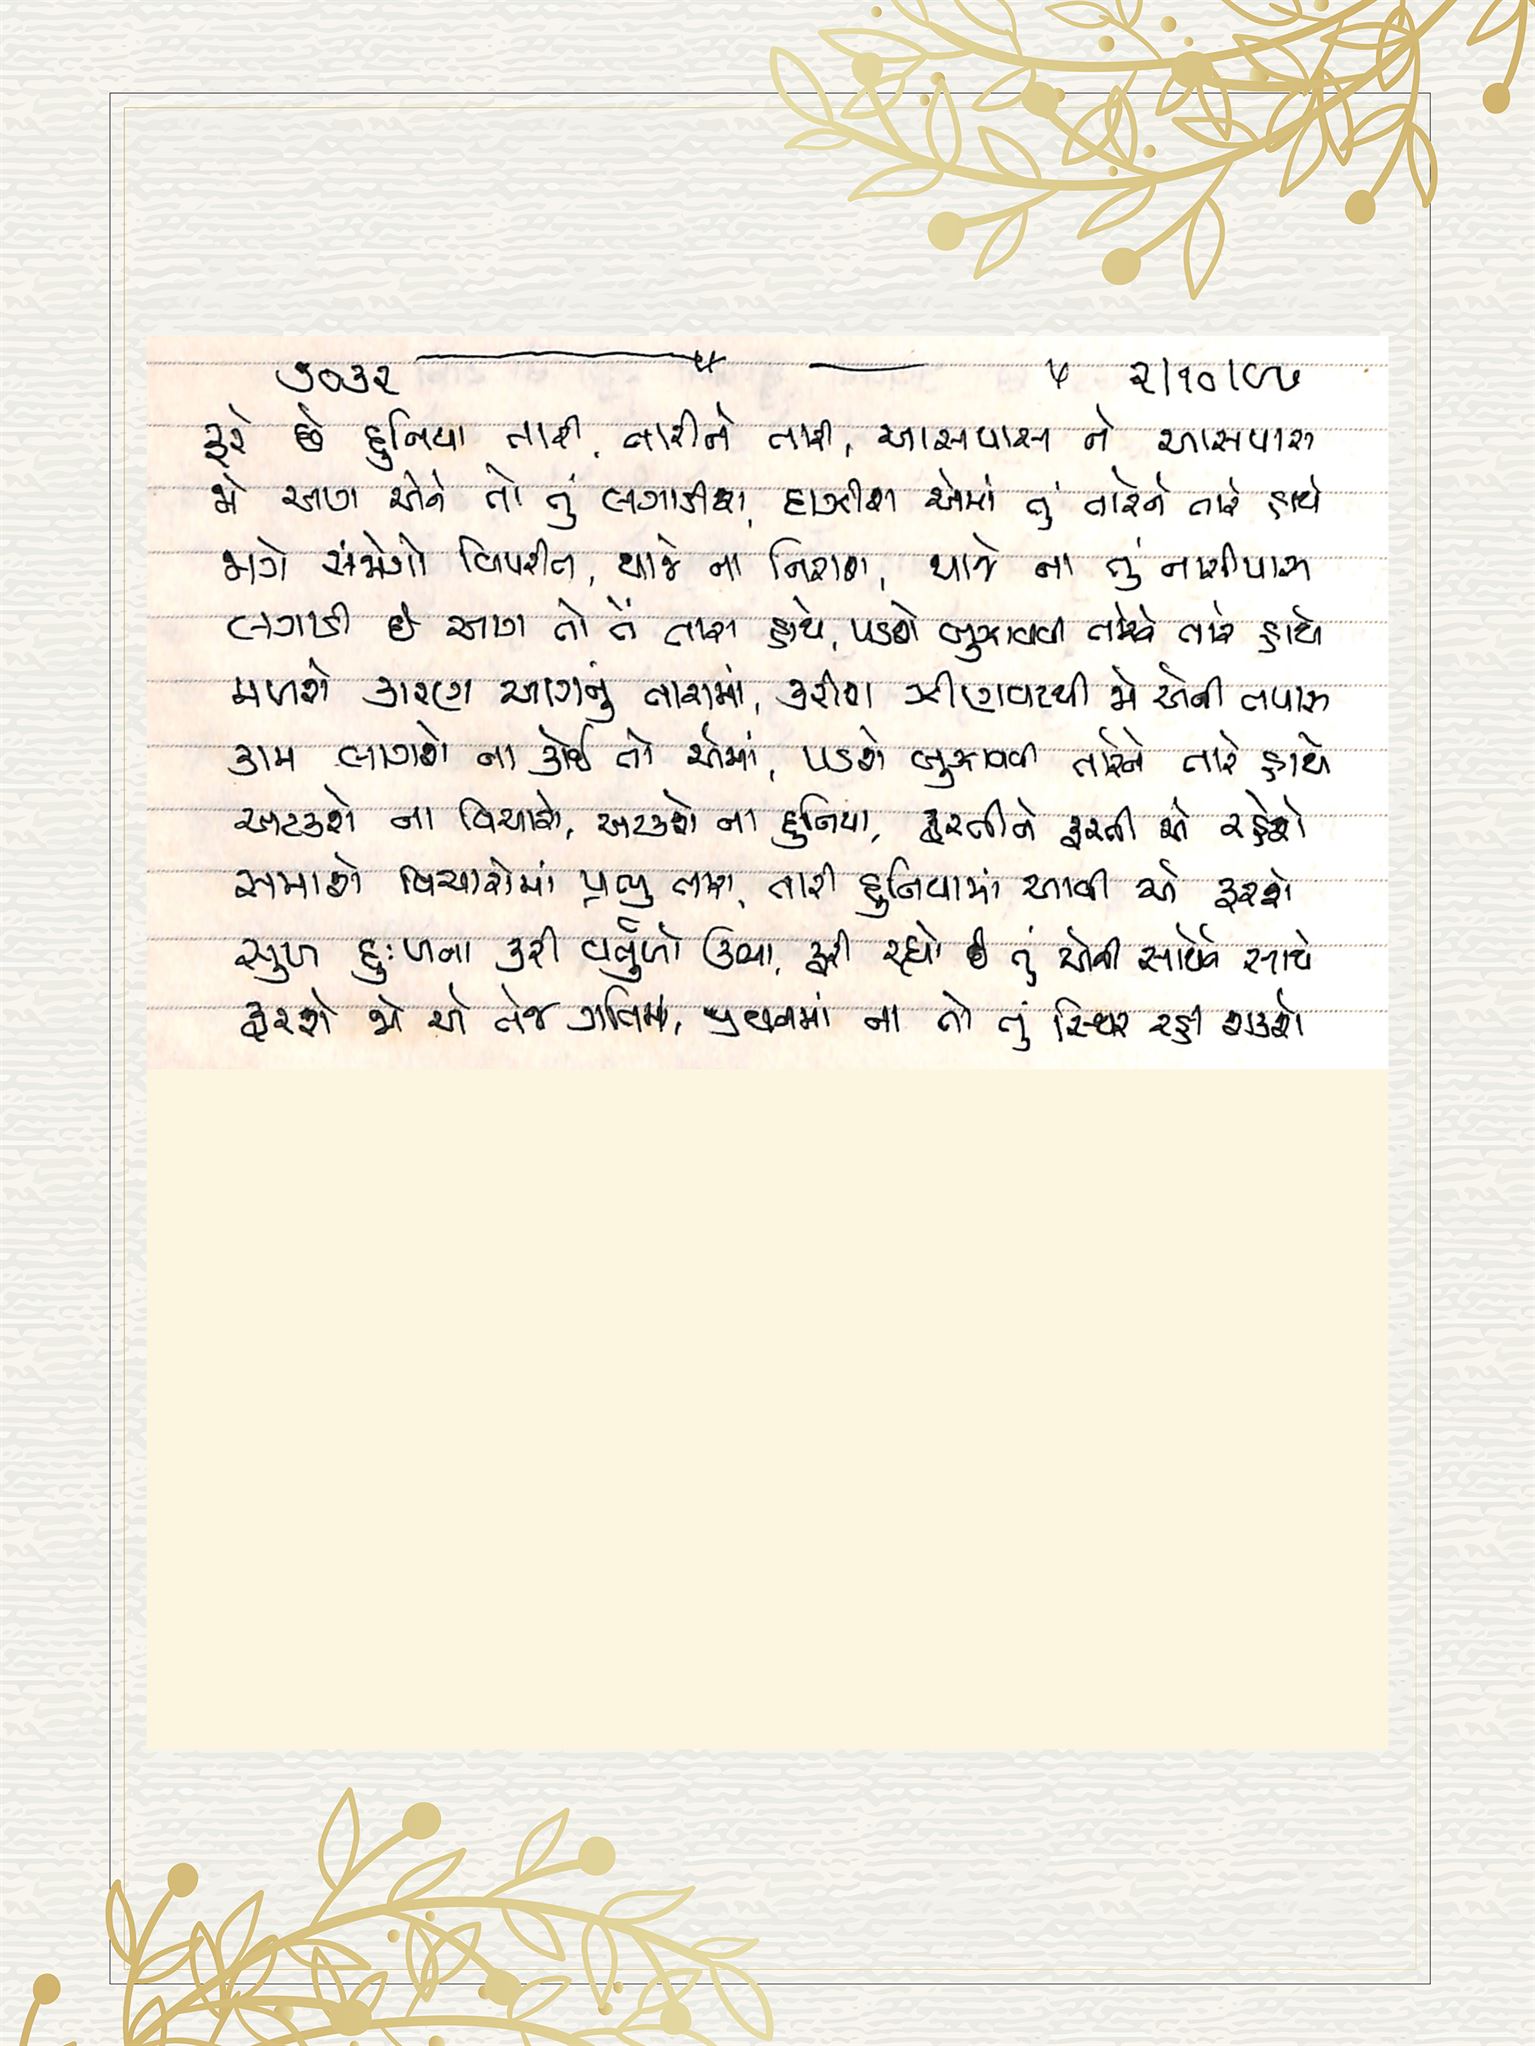 ૭૦૩૨ ૫ ૨/૧૦/૯૭
ફરે છે દુનિયા તારી, તારીને તારી, આસપાસ ને આસપાસ
જો આગ એને તો તું લગાડીશ, દાઝીશ એમાં તું તારેને તારે હાથે
જાગે સંજોગો વિપરીત, થાજે ના નિરાશ, થાજે ના તું નાસીપાસ
લગાડી છે આગ તો તેં તારા હાથે, પડશે બુઝાવવી તારેને તારે હાથે
મળશે કારણ આગનું તારામાં, કરીશ ઝીણવટથી જો એની તપાસ
કામ લાગશે ના કોઈ તો એમાં, પડશે બુઝાવવી તારેને તારે હાથે
અટકશે ના વિચારો, અટકશે ના દુનિયા, ફરતીને ફરતી એ રહેશે
સમાશે વિચારોમાં પ્રભુ તારા, તારી દુનિયામાં આવી એ ફરશે
સુખ દુઃખના કરી વર્તુળો ઊભા, ફરી રહ્યો છે તું એની સાથેને સાથે
ફરશે જો એ તેજ ગતિમાં, પ્રયત્નમાં ના તો તું સ્થિર રહી શકશે